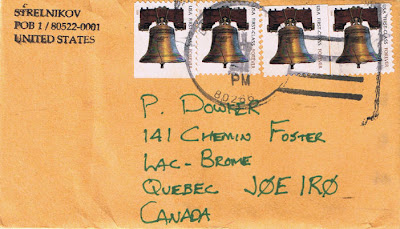 STRELNIKOV
POB 1 / 80522-0001
UNITED STATES
USA FIRST-CLASS FOREVER
USA FIRST-CLASS FOREVER
USA FIRST-CLASS FOREVER
USA FIRST-CLASS FOREVER
PM
P. DOWKER
141 CHEMIN FOSTER
LAC-BROME
QUEBEC JØE IRØ
CANADA